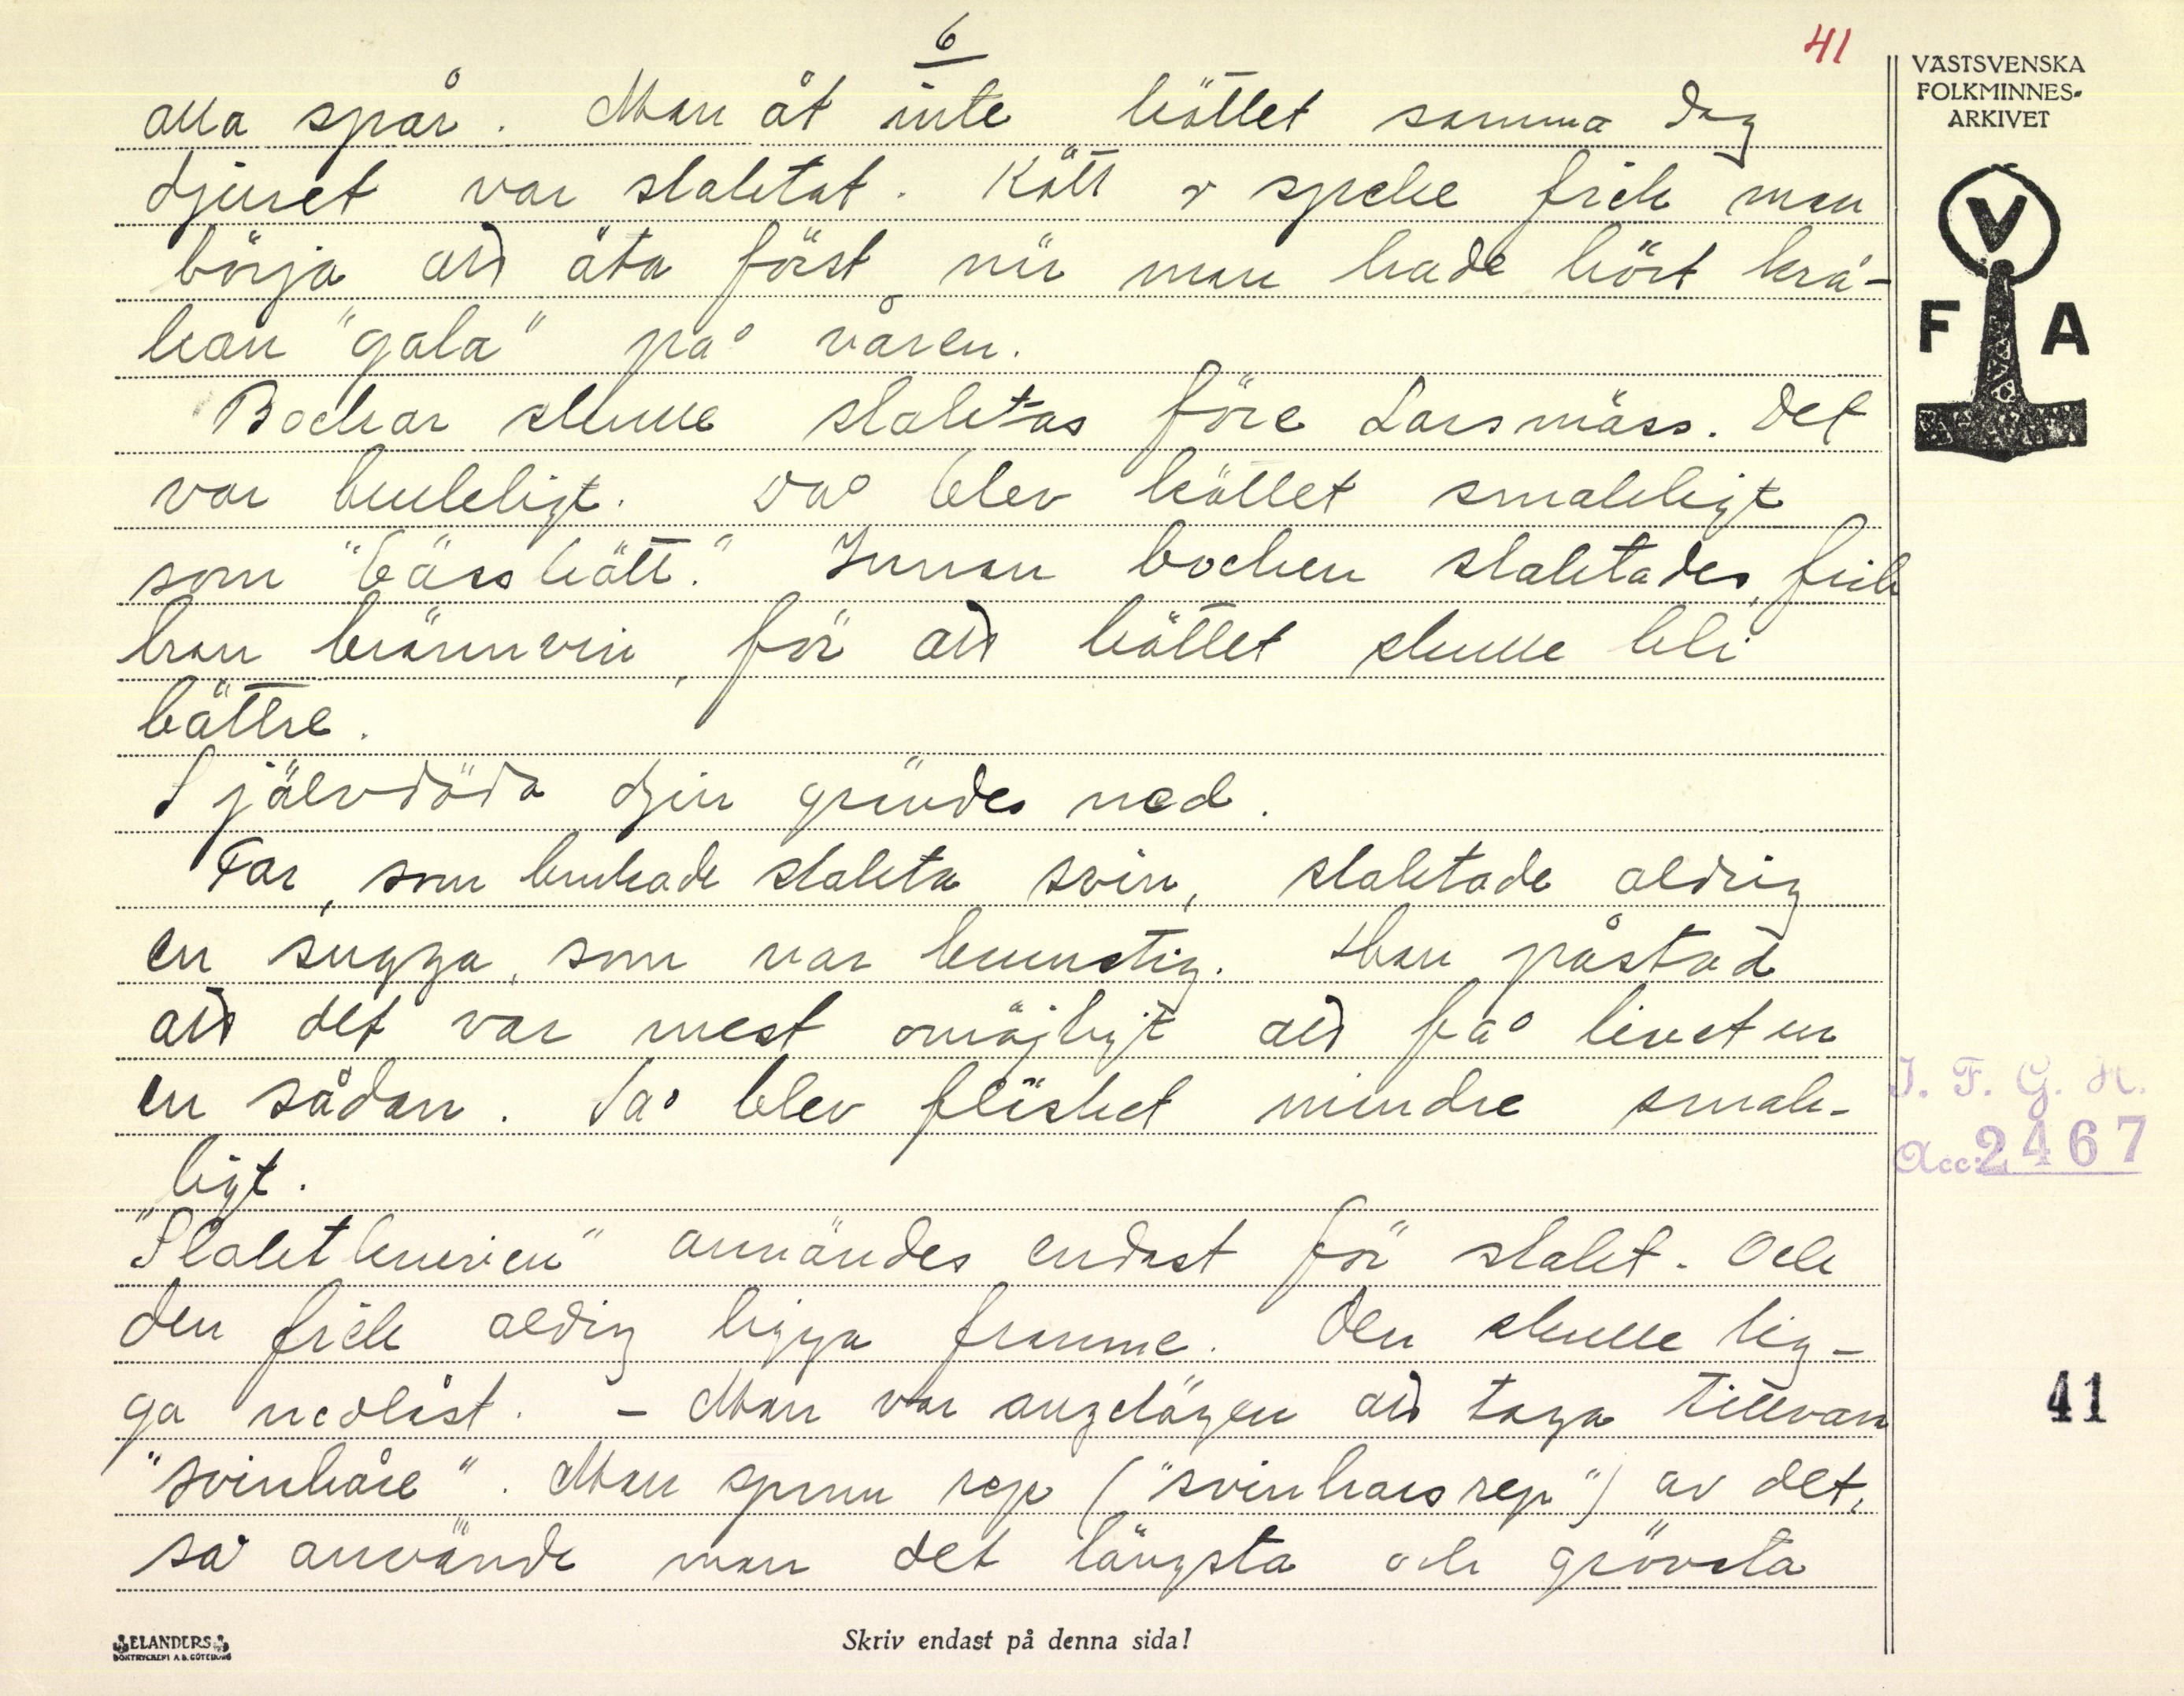 6
41
alla spår. Man åt inte köttet samma dag
djuret var slaktat. Kött o späke fick man
börja att äta först när man hade hört krå-
kan "gala" på våren.
Bockar skulle slaktas före Larsmäss. Det
var brukligt. Då blev köttet smakligt
som "bässkött." Innan bocken slaktades, fick
han brännvin, för att köttet skulle bli
bättre.
Självdöda djur grävdes ned.
Far, som brukade slakta svin, slaktade aldrig
en sugga, som var brunstig. Han påstod
att det var mest omöjligt att få livet ur
en sådan. Så blev fläsket mindre smak-
ligt.
"Slaktkniven" användes endast för slakt. Och
den fick aldrig ligga framme. Den skulle lig-
ga nedlåst. - Man var angelägen att taga tillvara
"svinhåre". Man spann rep ("svinhårsrep") av det,
så använde man det längsta och grövsta
VÄSTSVENSKA
FOLKMINNES-
ARKIVET
V
F A
I. F. G. H.
Acc: 2467
41
ELANDERS
BOKTRYCKERI A.B. GÖTEBORG
Skriv endast på denna sida!